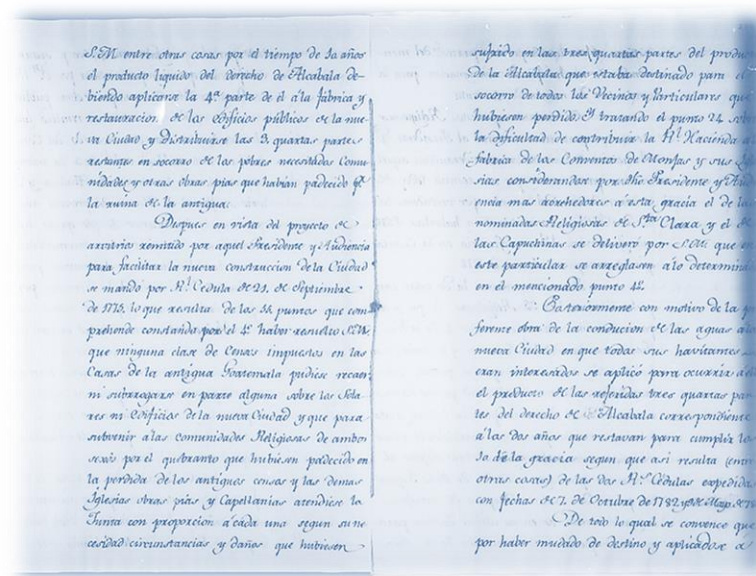 S.M entre otras cosas por el tiempo de 10 años
el producto liquido del derecho de Alcabala de-
biendo aplicarse la 4ª parte de el á la fabrica y
restauracion de los Edificios públicos de la nue-
va Ciudad y Distribuirse las 3 quartas partes
restantes en socorro de los pobres necesitados Comu-
nidades y otras obras pias que habian padecido
la ruina de la antigua.
Despues en vista del proyecto de
arvitrios remitido por aquel Presidente y Audiencia
para facilitar la nueva construccion de la Ciudad
se mandó por Rl Cedula de 21. de Septiembre
de 1775. lo que resulta de los puntos que com-
prehende constando por el 4º haber resuelto S.M.
que ninguna clase de Censos impuestos en las
Casas de la antigua Goatemala pudiese recaer
ni subrogarse en parte alguna sobre los Sola-
res ni Edificios de la nueva Ciudad y que para
subvenir á las comunidades Religiosas de ambos
sexos por el quebranto que hubiesen padecido en
la perdida de los antiguos censos y las demas
Iglesias obras pias y Capellanias atendiese la
Junta con proporcion á cada una segun su ne-
cesidad circunstancias y daños que hubiesen
sufrido en las tres quartas partes del produ
de la Alcabala que estaba destinado para el
socorro de todos los Vecinos y Particulares que
hubiesen perdido. Y tratando el punto 24
la dificultad de contribuir la Rl Hacienda á
fabrica de los Conventos de Monjas y sus
sias considerandose por dho Presidente y Aud
encia mas acrehedores á esta gracia el de la
nominadas Religiosas de Sta Clara y el de
las Capuchinas se deliveró por S.M. que en
este particular se arreglasen á lo determina
en el mencionado punto 4º.
Posteriormente con motivo de la
ferente obra de la conducion de las aguas á
nueva Ciudad en que todos sus havitantes
eran interesados se aplicó para ocurrir á
el producto de las referidas tres quartas par
tes del derecho de Alcabala correspondiente
á los dos años que restavan para cumplir lo
10 de la gracia segun que asi resulta (entre
otras cosas) de las dos Rs Cédulas expedidas
con fechas de 7. de Octubre de 1782 y de Mayo de
De todo lo qual se convence que
por haber mudado de destino y aplicadose á